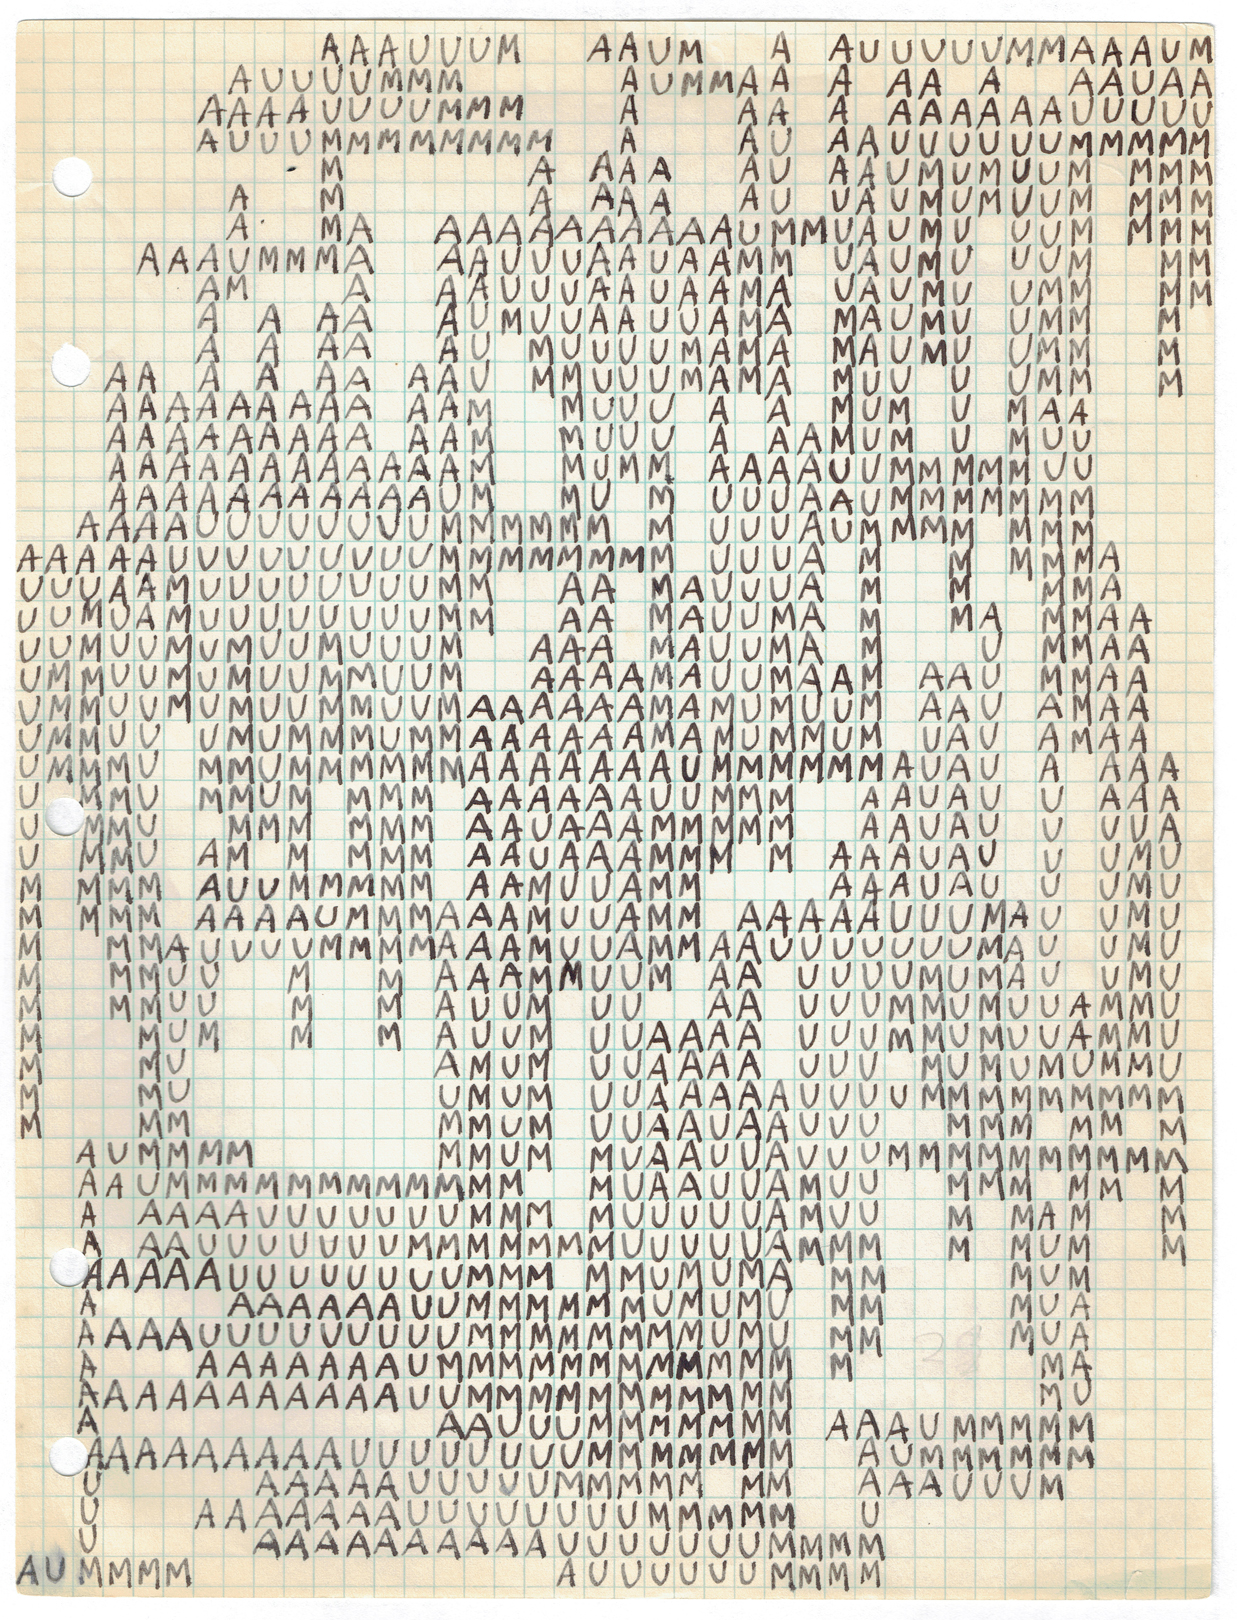 AAAUUUM AAUM A AUUUUUMMAAAUM
AUUUUMMM AUMMAA A AA A AAUAA
AAAAUUUUMMM A AA A AAAAAAUUUUU
AUUUMMMMMMMM A AU AAUUUUUUMMMMM
M A AAA AU AAUMUMUUM MMM
A M A AAA AU UAUMUMUUM MMM
A MA AAAAAAAAAAUMMUAUMU UUM MMM
AAAUMMMA AAUUUAAUAAMM UAUMU UUM MM
AM A AAUUUAAUAAMA UAUMU UMM MM
A A AA AUMUUAAUUAMA MAUMU UMM M
A A AA AU MUUUUMAMA MAUMU UMM M
AA A A AA AAU MMUUUMAMA MUU U UMM M
AAAAAAAAA AAM MUUU A A MUM U MAA
AAAAAAAAA AAM MUUU A AAMUM U MUU
AAAAAAAAAAAAM MUMM AAAAUUMMMMMUU
AAAAAAAAAAAUM MU M UUUAAUMMMMMMM
AAAAUUUUUUUUMMMMMM M UUUAUMMMM MMM
AAAAAUUUUUUUUUMMMMMMMM UUUA M M MMMA
UUUAAMUUUUUUUUMM AA MAUUUA M M MMA
UUMUAMUUUUUUUUMM AA MAUUMA M MA MMAA
UUMUUMUMUUMUUUM AAA MAUUMA M U MMAA
UMMUUMUMUUMMUUM AAAAMAUUMAAM AAU MMAA
UMMUUMUMUUMMUUMAAAAAAMAMUMUUM AAU AMAA
UMMUU UMUMMMUMMAAAAAAMAMUMMUM UAU AMAA
UMMMU MMUMMMMMMAAAAAAAUMMMMMMAUAU A AAA
U MMU MMUM MMM AAAAAAUUMMM AAUAU U AAA
U MMU MMM MMM AAUAAAMMMMM AAUAU U UUA
U MMU AM M MMM AAUAAAMMM M AAAUAU U UMU
M MMM AUUMMMMM AAMUUAMM AAAUAU U UMU
M MMM AAAAUMMMAAAMUUAMM AAAAAUUUMAU UMU
M MMAUUUUMMMMAAAMUUAMMAAUUUUUUUMAU UMU
M MMUU M M AAAMMUUM AA UUUUMUMAU UMU
M MMUU M M AUUM UU AA UUUMMUMUUAMMU
M MUM M M AUUM UUAAAA UUUMMUMUUAMMU
M MU AMUM UUAAAA UUU MUMUMUMMU
M MU UMUM UUAAAAAUUUUMMMMMMMMM
M MM MMUM UUAAUAAUUU MMM MM M
AUMMMM MMUM MUAAUUAUUUMMMMMMMMMM
AAUMMMMMMMMMMMM MUAAUUAMUU MMM MM M
A AAAAUUUUUUUMMM MUUUUUAMUU M MAM M
A AAUUUUUUUMMMMMMMUUUUUAMMM M MUM M
AAAAAUUUUUUUUMMM MMUMUMA MM MUM
A AAAAAAUUMMMMMMUMUMU MM MUA
AAAAUUUUUUUUUMMMMMMMMUMU MM MUA
A AAAAAAAUMMMMMMMMMMMM M MA
AAAAAAAAAAAUUMMMMMMMMMMM MU
A AAUUUMMMMMMM AAAUMMMMM
AAAAAAAAAUUUUUUUUMMMMMMM AUMMMMMM
U AAAAAUUUUUMMMMM MM AAAUUUM
U AAAAAAAUUUUUUUUMMMMM U
U AAAAAAAAAAUUUUUUUMMMM
AUMMMM AUUUUUUMMMM